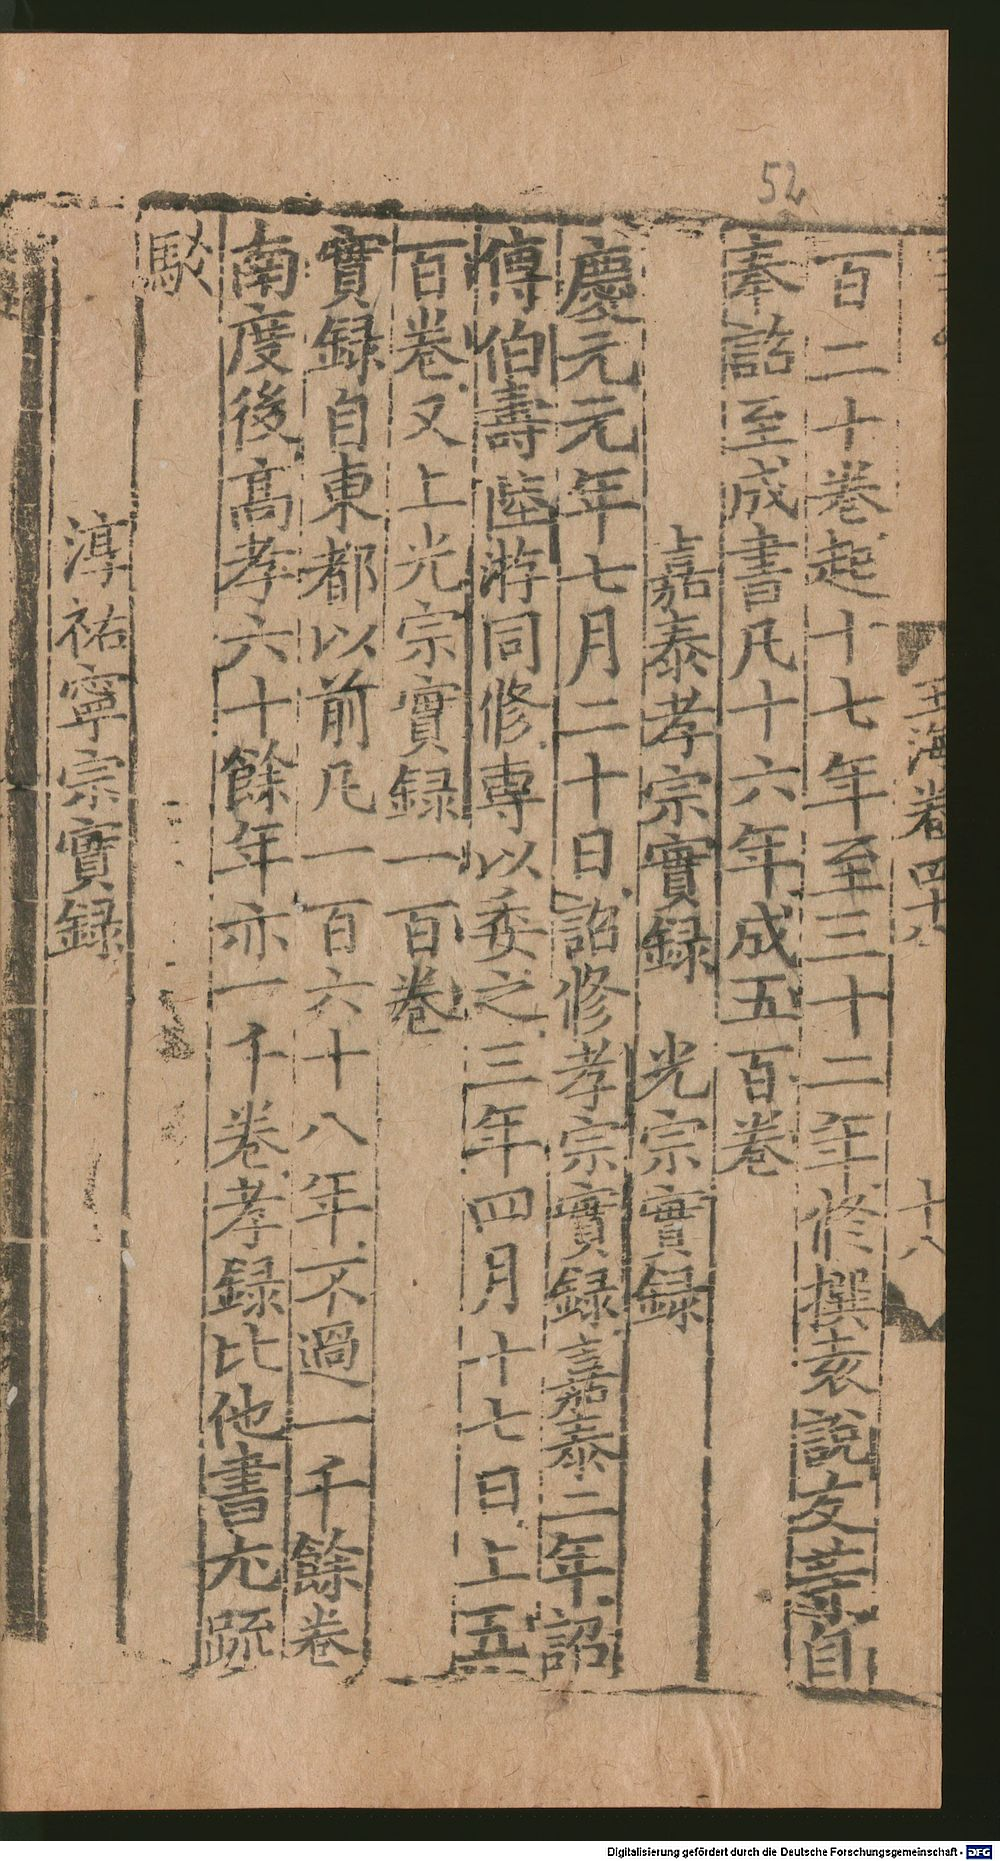 52
玉海卷四十八
十八
百二十卷起十七年至三十二年修撰袁說友等自
奉詔至成書凡十六年成五百卷
嘉泰孝宗實録 光宗實録
慶元元年七月二十日詔修孝宗實録嘉泰二年詔
傅伯壽陸游同修專以委之三年四月十七日上五
百卷又上光宗實録一百卷
實録自東都以前凡一百六十八年不過一千餘卷
南度後高孝六十餘年亦一千卷孝録比他書尤疏
駁
淳祐寧宗實録
Digitalisierung gefördert durch die Deutsche Forschungsgemeinschaft - DFG